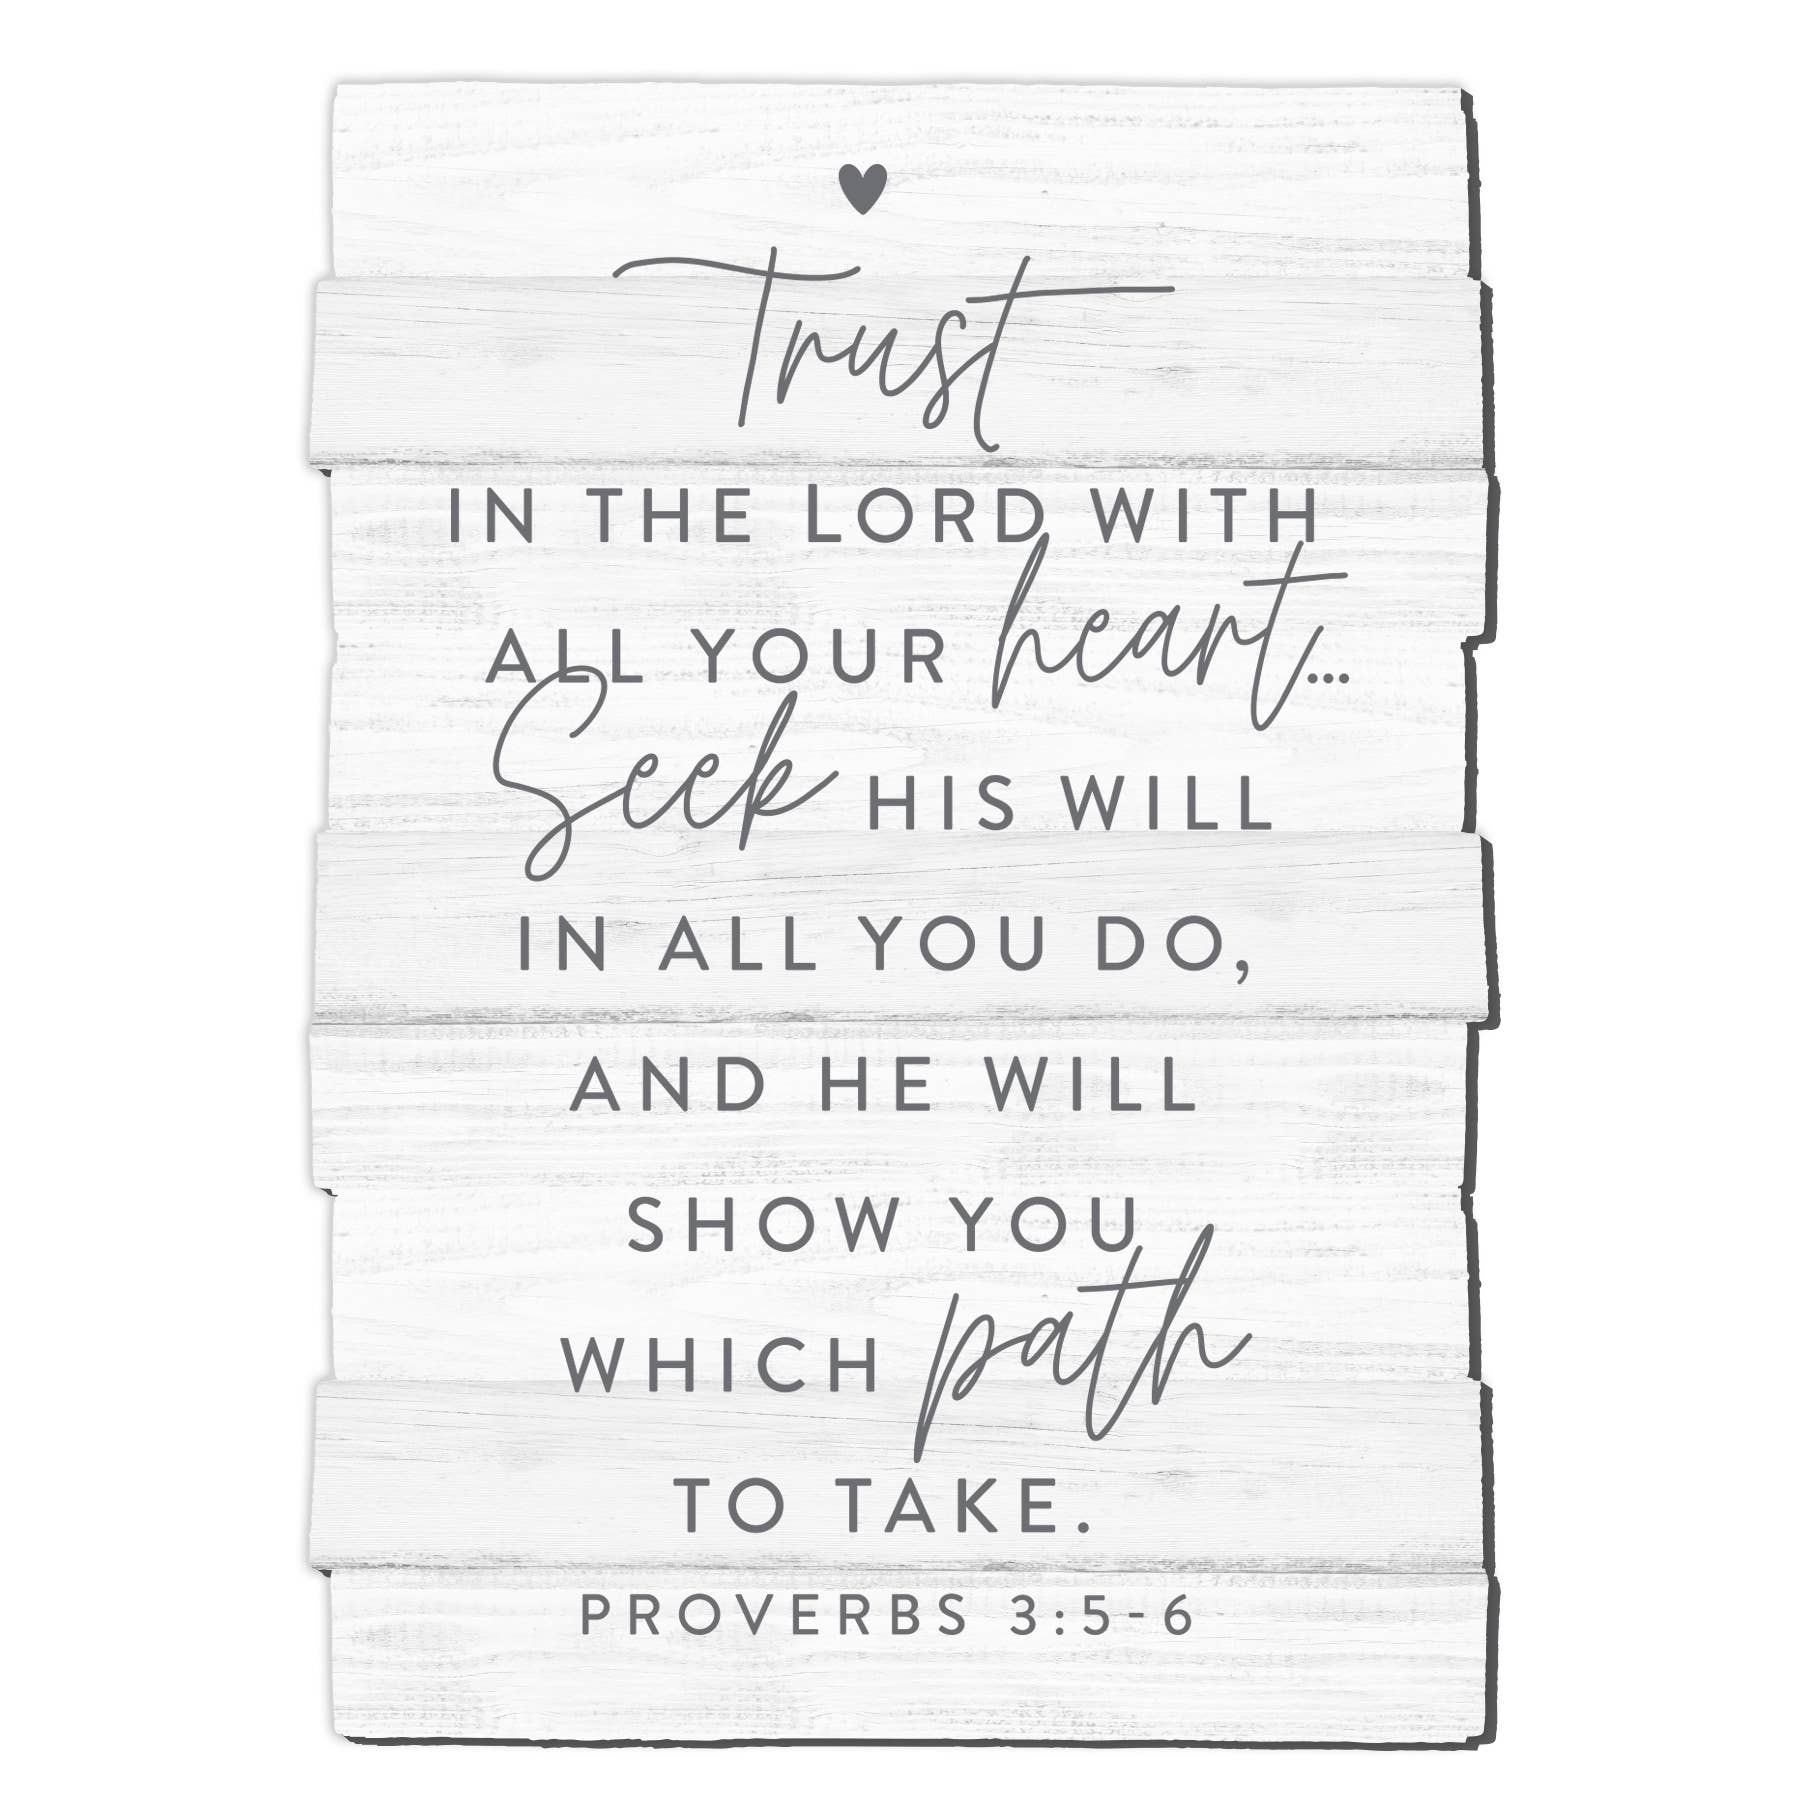 Trust
IN THE LORD WITH
ALL YOUR heart...
Seek HIS WILL
IN ALL YOU DO,
AND HE WILL
SHOW YOU
WHICH path
TO TAKE.
PROVERBS 3:5-6